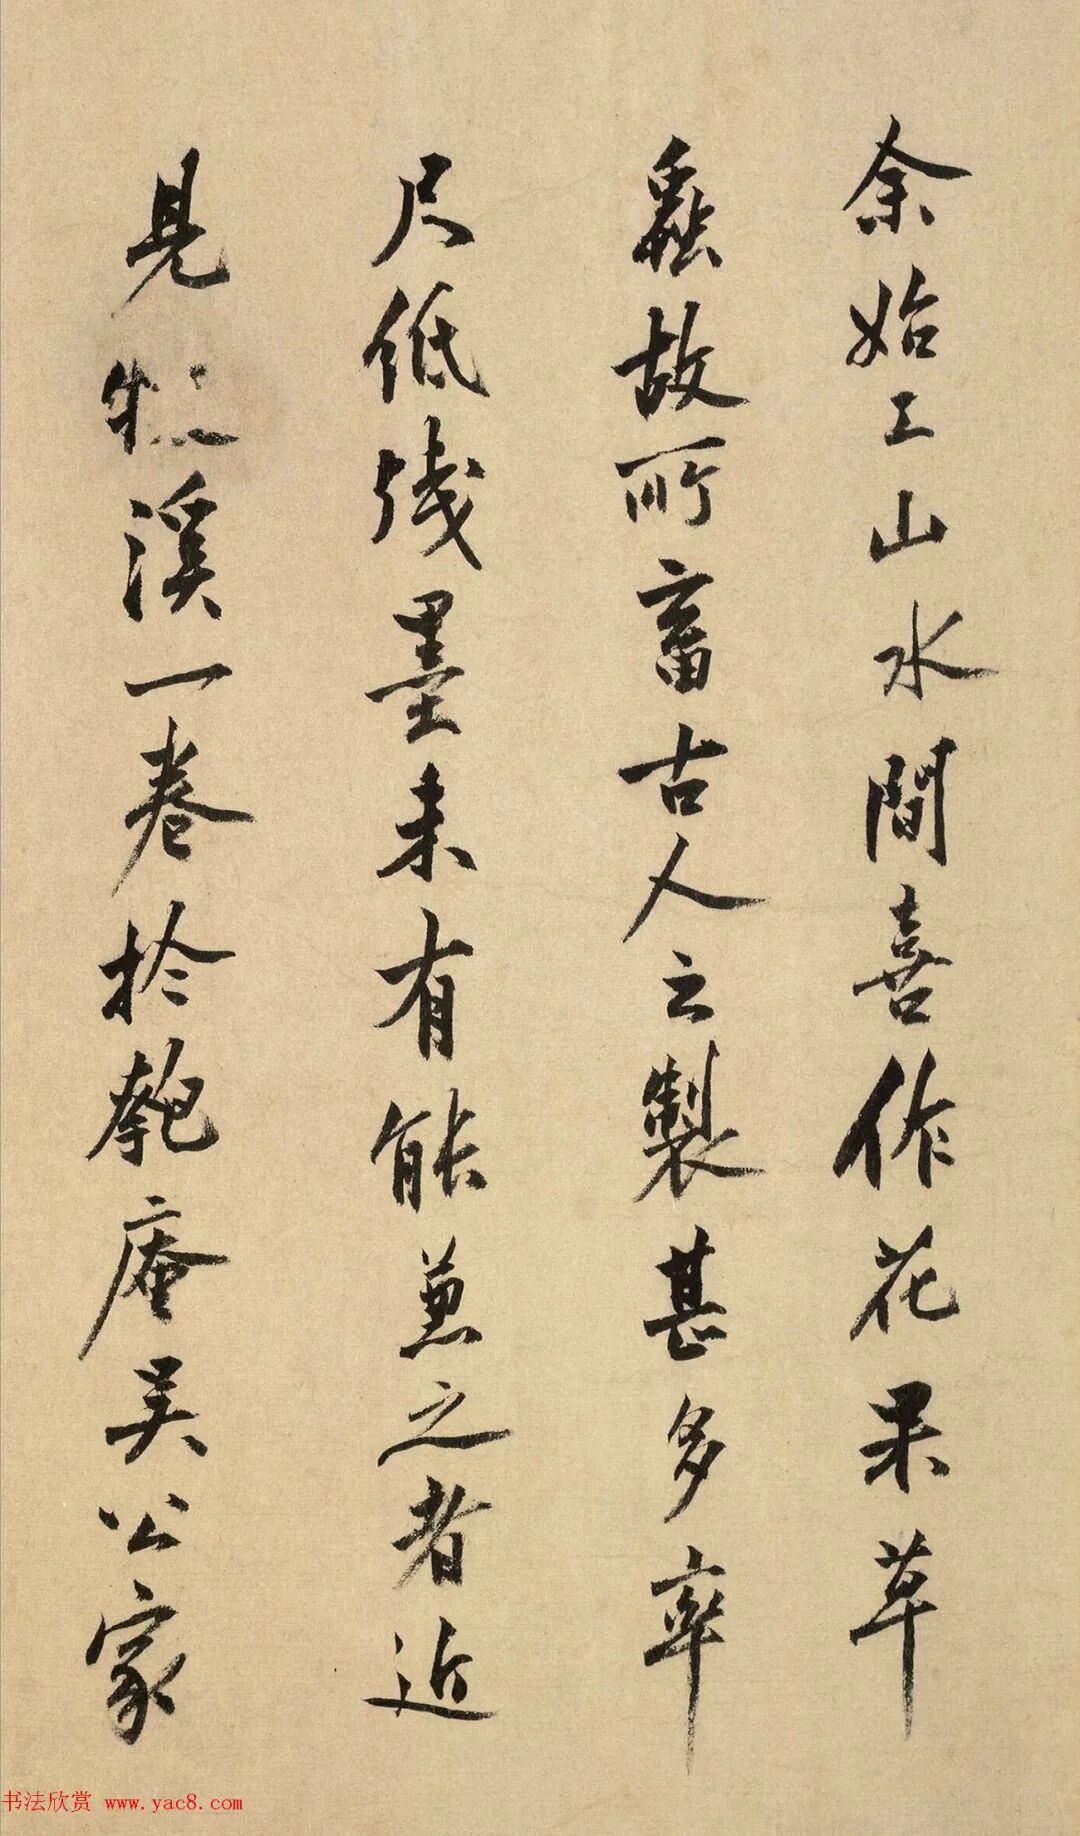 余始工山水間喜作花果草
蟲故所畜古人之製甚多率
尺紙残墨未有能兼之者近
見牧溪一卷於匏庵吳公家
书法欣赏 www.yac8.com